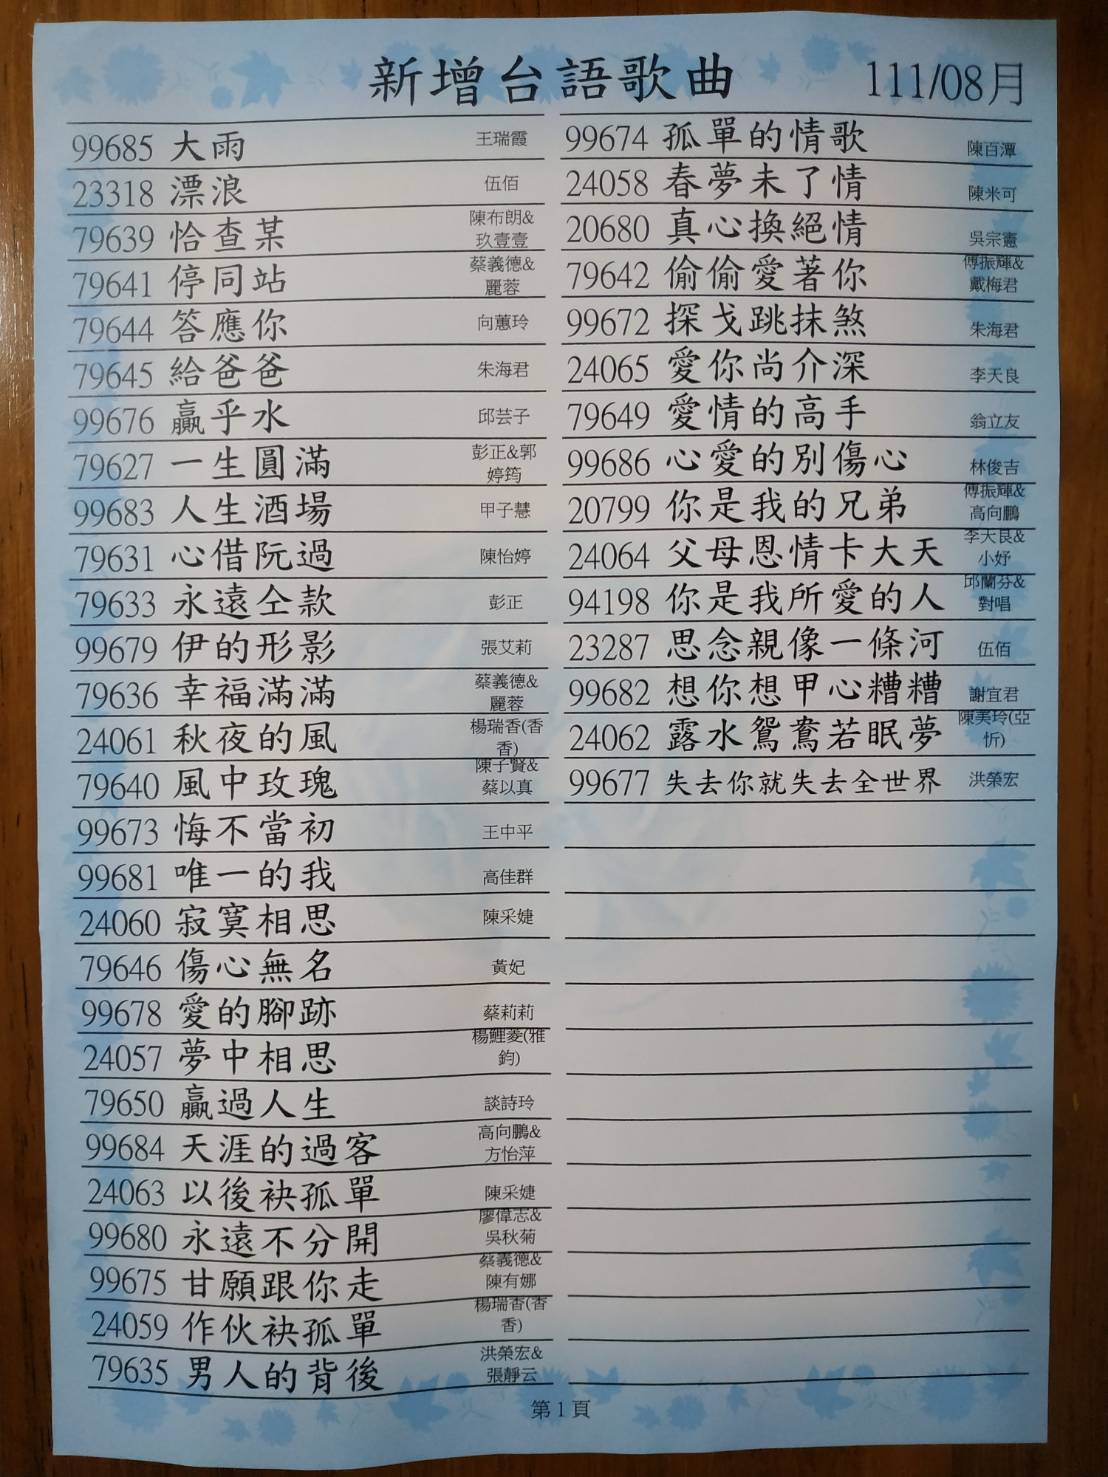 新增台語歌曲 111/08月
99685 大雨 王瑞霞
23318 漂浪 伍佰
79639 恰查某 陳布朗&玖壹壹
79641 停同站 蔡義德&麗蓉
79644 答應你 向蕙玲
79645 給爸爸 朱海君
99676 贏乎水 邱芸子
79627 一生圓滿 彭正&郭婷筠
99683 人生酒場 甲子慧
79631 心借阮過 陳怡婷
79633 永遠仝款 彭正
99679 伊的形影 張艾莉
79636 幸福滿滿 蔡義德&麗蓉
24061 秋夜的風 楊瑞香(香香)
79640 風中玫瑰 陳子賢&蔡以真
99673 悔不當初 王中平
99681 唯一的我 高佳群
24060 寂寞相思 陳采婕
79646 傷心無名 黃妃
99678 愛的腳跡 蔡莉莉
24057 夢中相思 楊鯉菱(雅鈞)
79650 贏過人生 談詩玲
99684 天涯的過客 高向鵬&方怡萍
24063 以後袂孤單 陳采婕
99680 永遠不分開 廖偉志&吳秋菊
99675 甘願跟你走 蔡義德&陳有娜
24059 作伙袂孤單 楊瑞香(香香)
79635 男人的背後 洪榮宏&張靜云
99674 孤單的情歌 陳百潭
24058 春夢未了情 陳米可
20680 真心換絕情 吳宗憲
79642 偷偷愛著你 傅振輝&戴梅君
99672 探戈跳抹煞 朱海君
24065 愛你尚介深 李天良
79649 愛情的高手 翁立友
99686 心愛的別傷心 林俊吉
20799 你是我的兄弟 傅振輝&高向鵬
24064 父母恩情卡大天 李天良&小妤
94198 你是我所愛的人 邱蘭芬&對唱
23287 思念親像一條河 伍佰
99682 想你想甲心糟糟 謝宜君
24062 露水鴛鴦若眠夢 陳美玲(亞忻)
99677 失去你就失去全世界 洪榮宏
第1頁